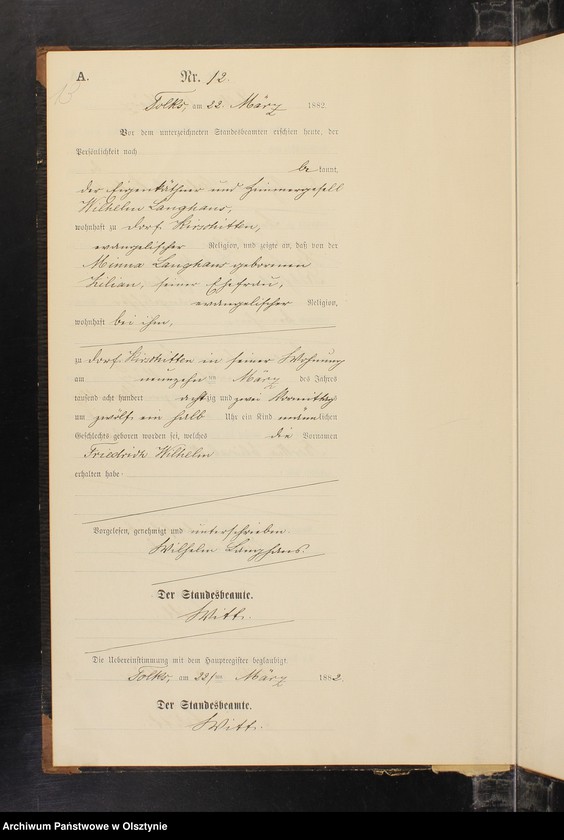 A.
Nr. 12.
13
Tolks, am 22. März 1882
Vor dem unterzeichneten Standesbeamten erschien heute, der
Persönlichkeit nach
be kannt,
der Eigenkäthner und Zimmergesell
Wilhelm Langhans,
wohnhaft zu Dorf Kirschitten,
evangelischer Religion, und zeigte an, daß von der
Minna Langhans geborenen
Kilian, seiner Ehefrau,
evangelischer Religion,
wohnhaft bei ihm,
zu Dorf Kirschitten in seiner Wohnung
am neunzehnten März des Jahres
tausend acht hundert achtzig und zwei Vormittags
um zwölf ein halb Uhr ein Kind männlichen
Geschlechts geboren worden sei, welches die Vornamen
Friedrich Wilhelm
erhalten habe
Vorgelesen, genehmigt und unterschrieben
Wilhelm Langhans.
Der Standesbeamte.
Witt.
Die Uebereinstimmung mit dem Hauptregister beglaubigt
Tolks, am 22ten März 1882.
Der Standesbeamte.
Witt.
Archiwum Państwowe w Olsztynie